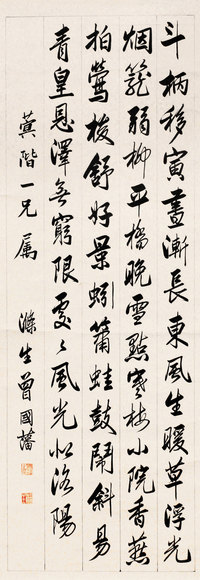 斗柄移寅晝漸長東風生暖草浮光
烟籠弱柳平橋晚雪點寒梅小院香燕
拍鶯梭舒好景蚓簫蛙鼓鬧斜昜
青皇恩澤無窮限處々風光似洛陽
蓂階一兄屬 滌生曾國藩